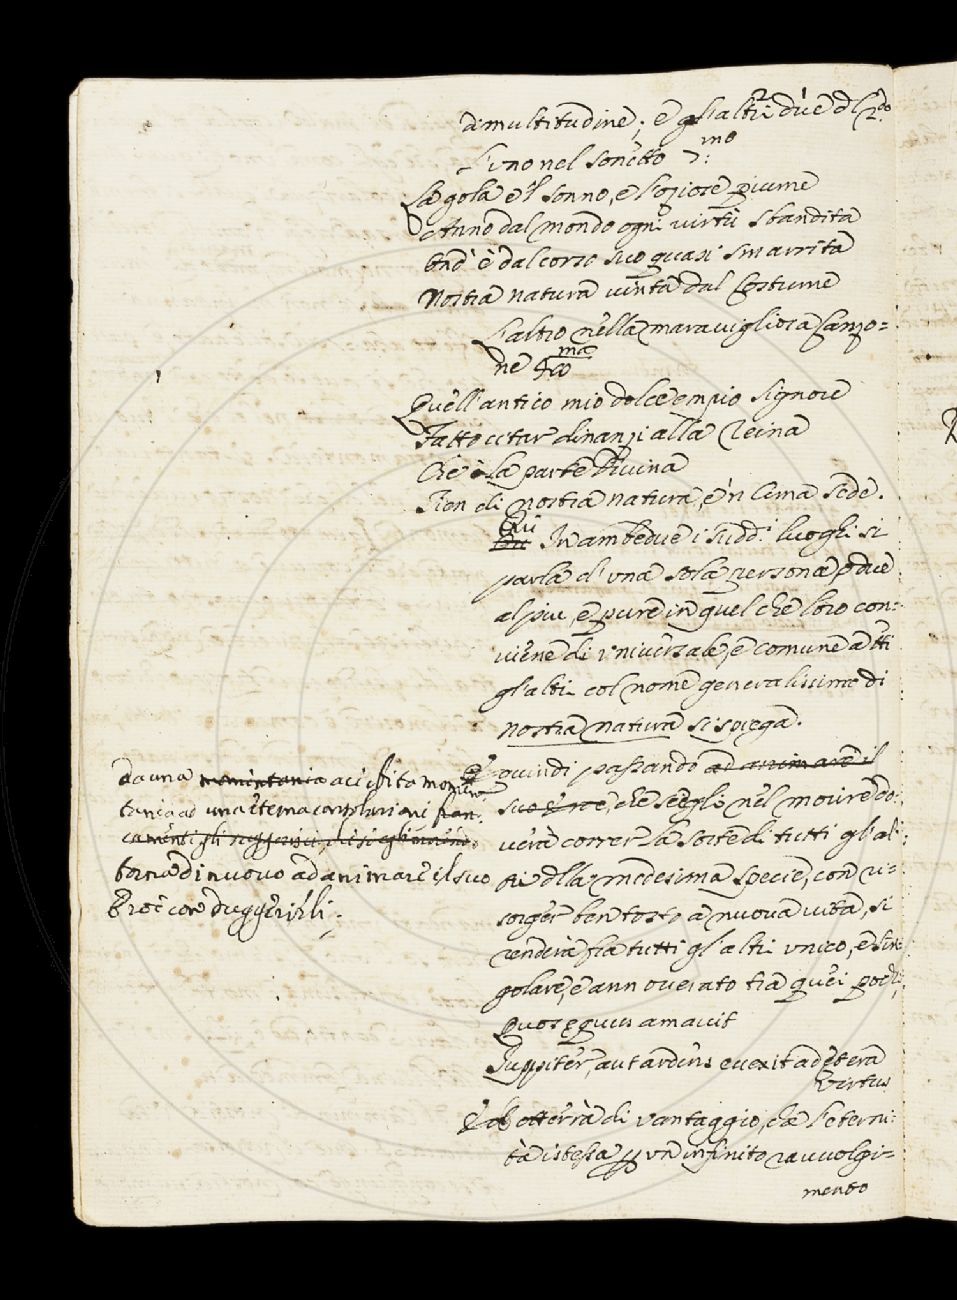 di multitudine; e gl'altri due del 2.do
L'uno nel sonetto 7:mo
La gola e 'l sonno, e l'oziose piume
Anno dal mondo ogni virtù sbandita
Ond' è dal corso suo quasi smarrita
Nostra natura vinta dal Costume
L'altro nella maravigliosa Canzo=
ne
Quell'antico mio dolce empio Signore
Fatto citar dinanzi alla Reina
Che la parte Divina
Tien di nostra natura, e 'n Cima sede.
Qui In ambedue i sudd.i luoghi si
parla d'una sola persona, o due
al piu, e pure in quel che loro con=
viene di universale, e comune a tti
gl'altri col nome generalissimo di
nostra natura si spiega.
E quindi passando ad animare il
suo Eroe, che s'egli nel morire do=
verà correr la sorte di tutti gl'al=
tri della medesima specie, con ri=
sorger ben tosto a nuova vita, si
renderà fra tutti gl'altri unico, e sin=
golare, e annoverato tra quei pochi,
Quos equus amavit
Juppiter, aut ardens evexit ad etera
virtus
E ch' otterrà di vantaggio, che l'eterni=
tà istessa p un infinito ravvolgi=
mento
da una momentania accessita momen=
tania ad una eterna
camente gli suggerisce, che s'egli
torna di nuovo ad animare il suo
Eroe con suggerirli: